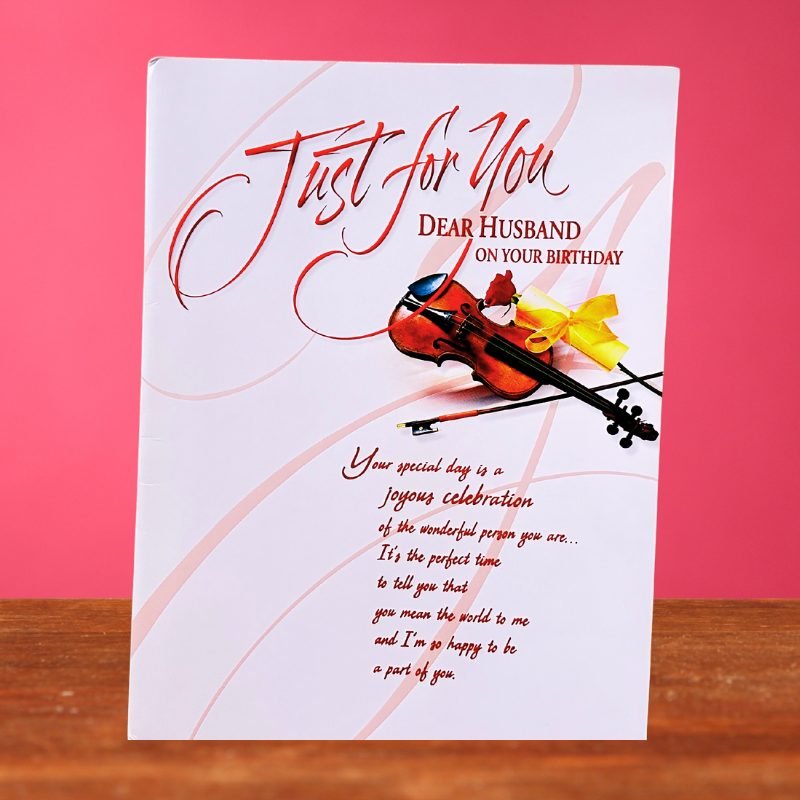 Just for You
DEAR HUSBAND
ON YOUR BIRTHDAY
Your special day is a
joyous celebration
of the wonderful person you are...
It's the perfect time
to tell you that
you mean the world to me
and I'm so happy to be
a part of you.